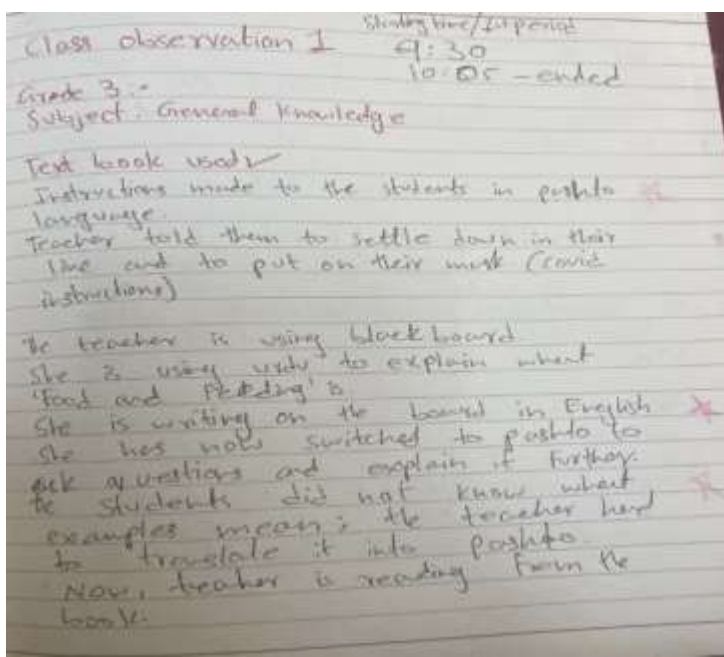 Class observation 1
Starting time/1st period
9:30
10:05 - ended
Grade 3 :-
Subject: General Knowledge
Text book used ✓
Instructions made to the students in pashto
language.
Teacher told them to settle down in their
line and to put on their mask (covid
instructions)
The teacher is using blackboard
She is using urdu to explain what
'Food and Feeding' is
She is writing on the board in English
She has now switched to pashto to
ask questions and explain it further.
The students did not know what
examples mean; the teacher had
to translate it into Pashto.
Now, teacher is reading from the
book.